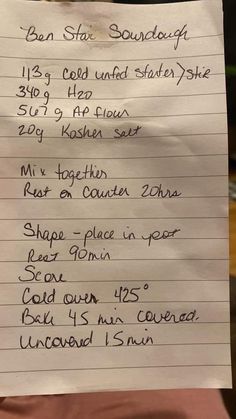 Ben Star Sourdough
113g Cold unfed Starter > Stir
340g H2O
567g AP flour
20g Kosher salt
Mix together
Rest on Counter 20hrs
Shape - place in pot
Rest 90min
Score
Cold oven 425°
Bake 45 min covered.
Uncovered 15min